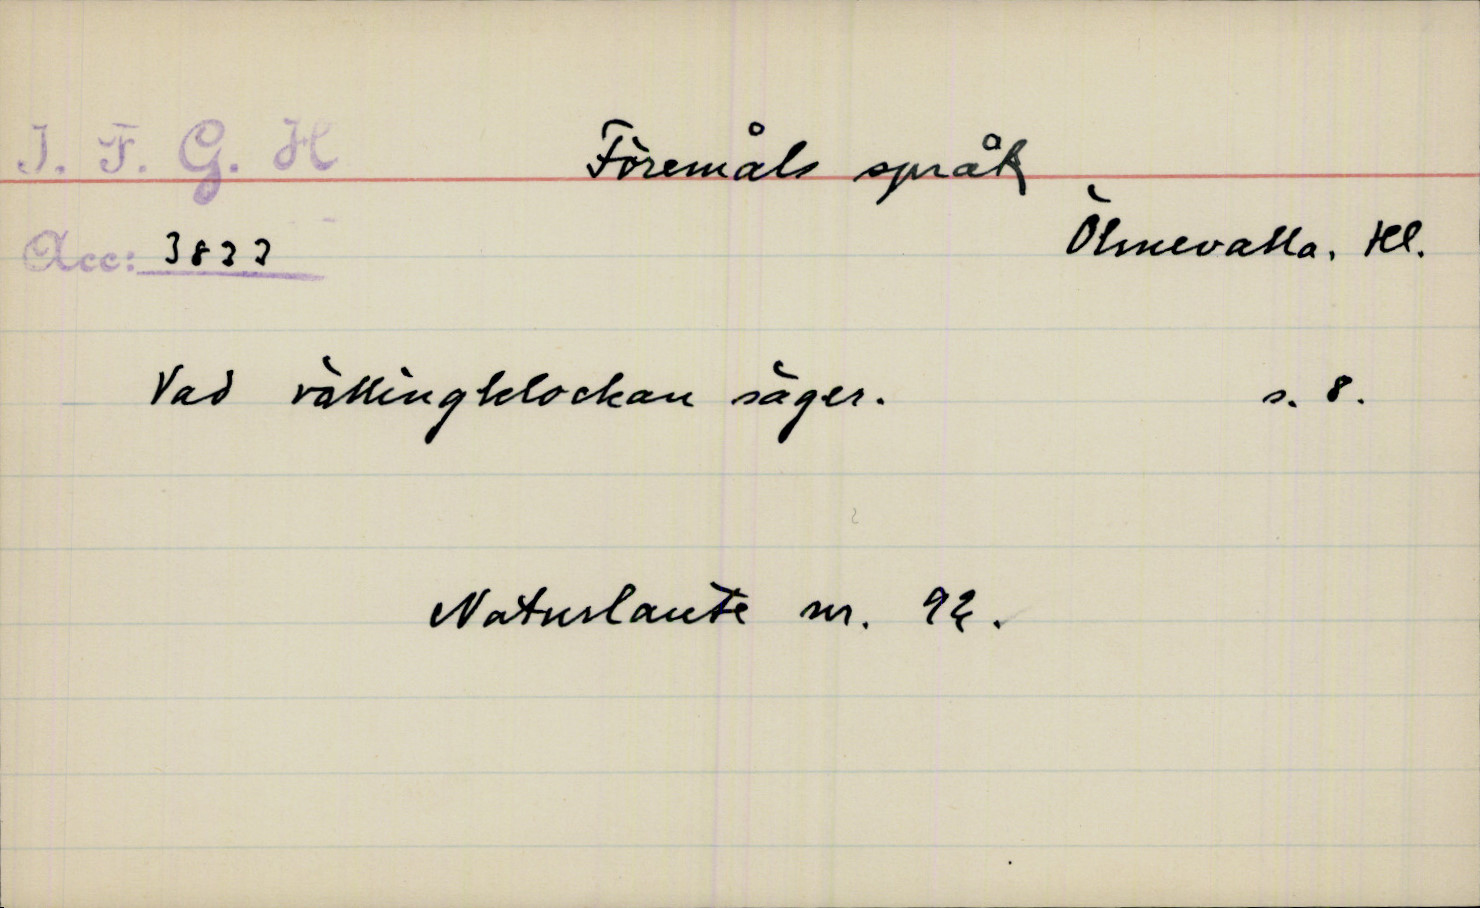 I. F. G. H Föremåls språk
Acc: 3833 Ölmevalla. Hl.
Vad vällingklockan säger. s. 8.
Naturlaute nr. 92.